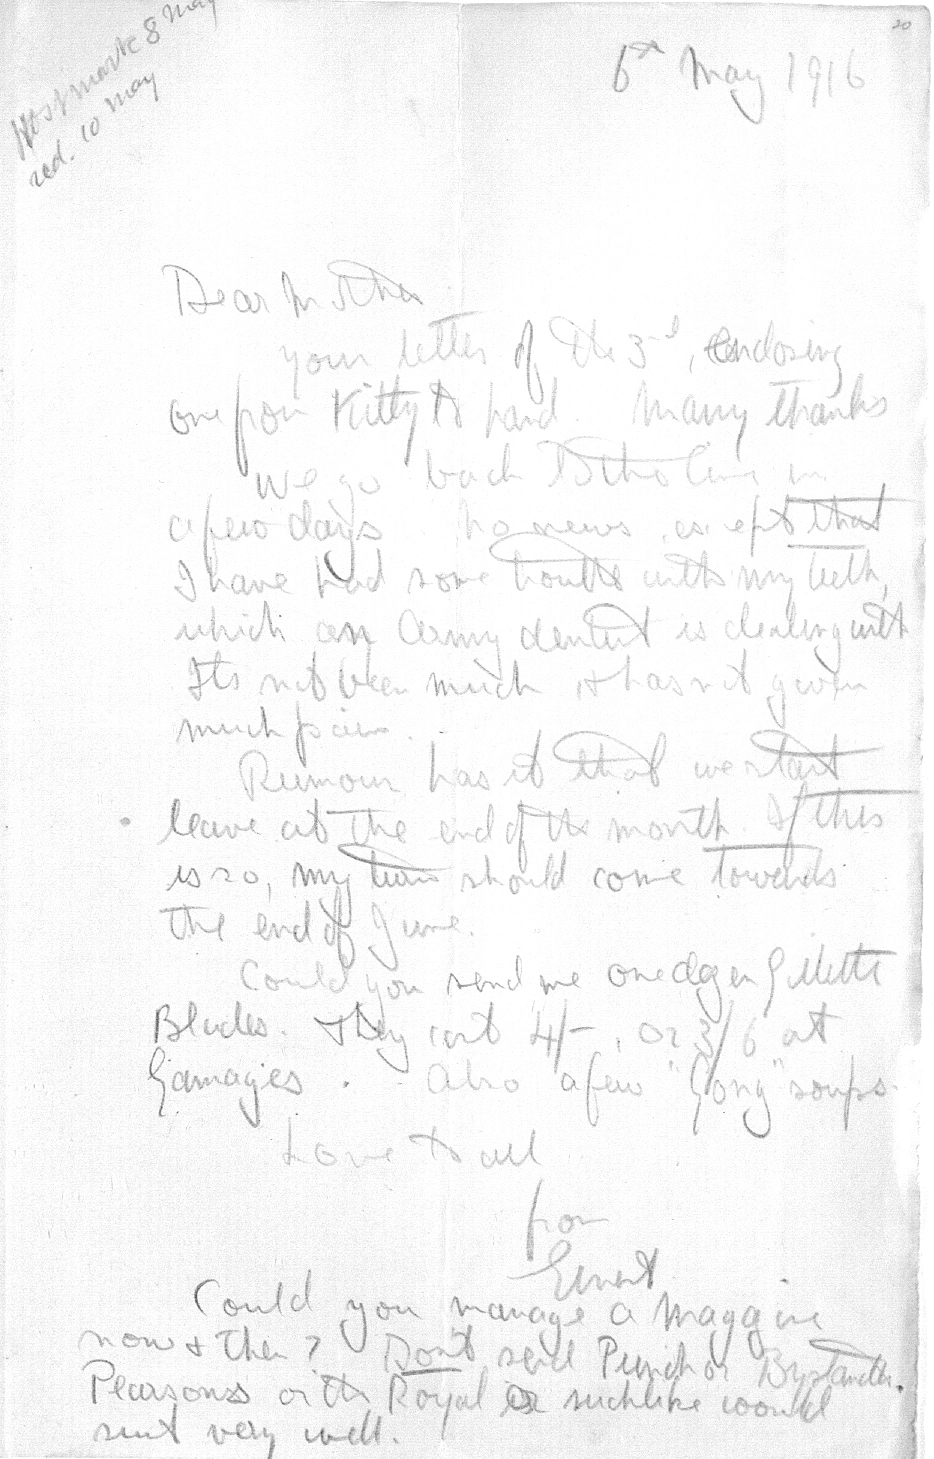 20
Postmark 8 May
red. 10 May
6th May 1916
Dear Mother
Your letter of the 3rd, enclosing
one from Kitty to hand. Many thanks
We go back to the line in
a few days. No news, except that
I have had some trouble with my teeth,
which an Army dentist is dealing with
Its not been much & hasnt given
much pain.
Rumour has it that we start
leave at the end of the month. If this
is so, my turn should come towards
the end of June.
Could you send me one dozen Gillette
Blades. They cost 4/-, or 3/6 at
Gamages. Also a few "Gong" soups.
Love to all
from
Ernest
Could you manage a magazine
now & then? Dont send Punch or Bystander.
Pearsons or the Royal or suchlike would
suit very well.